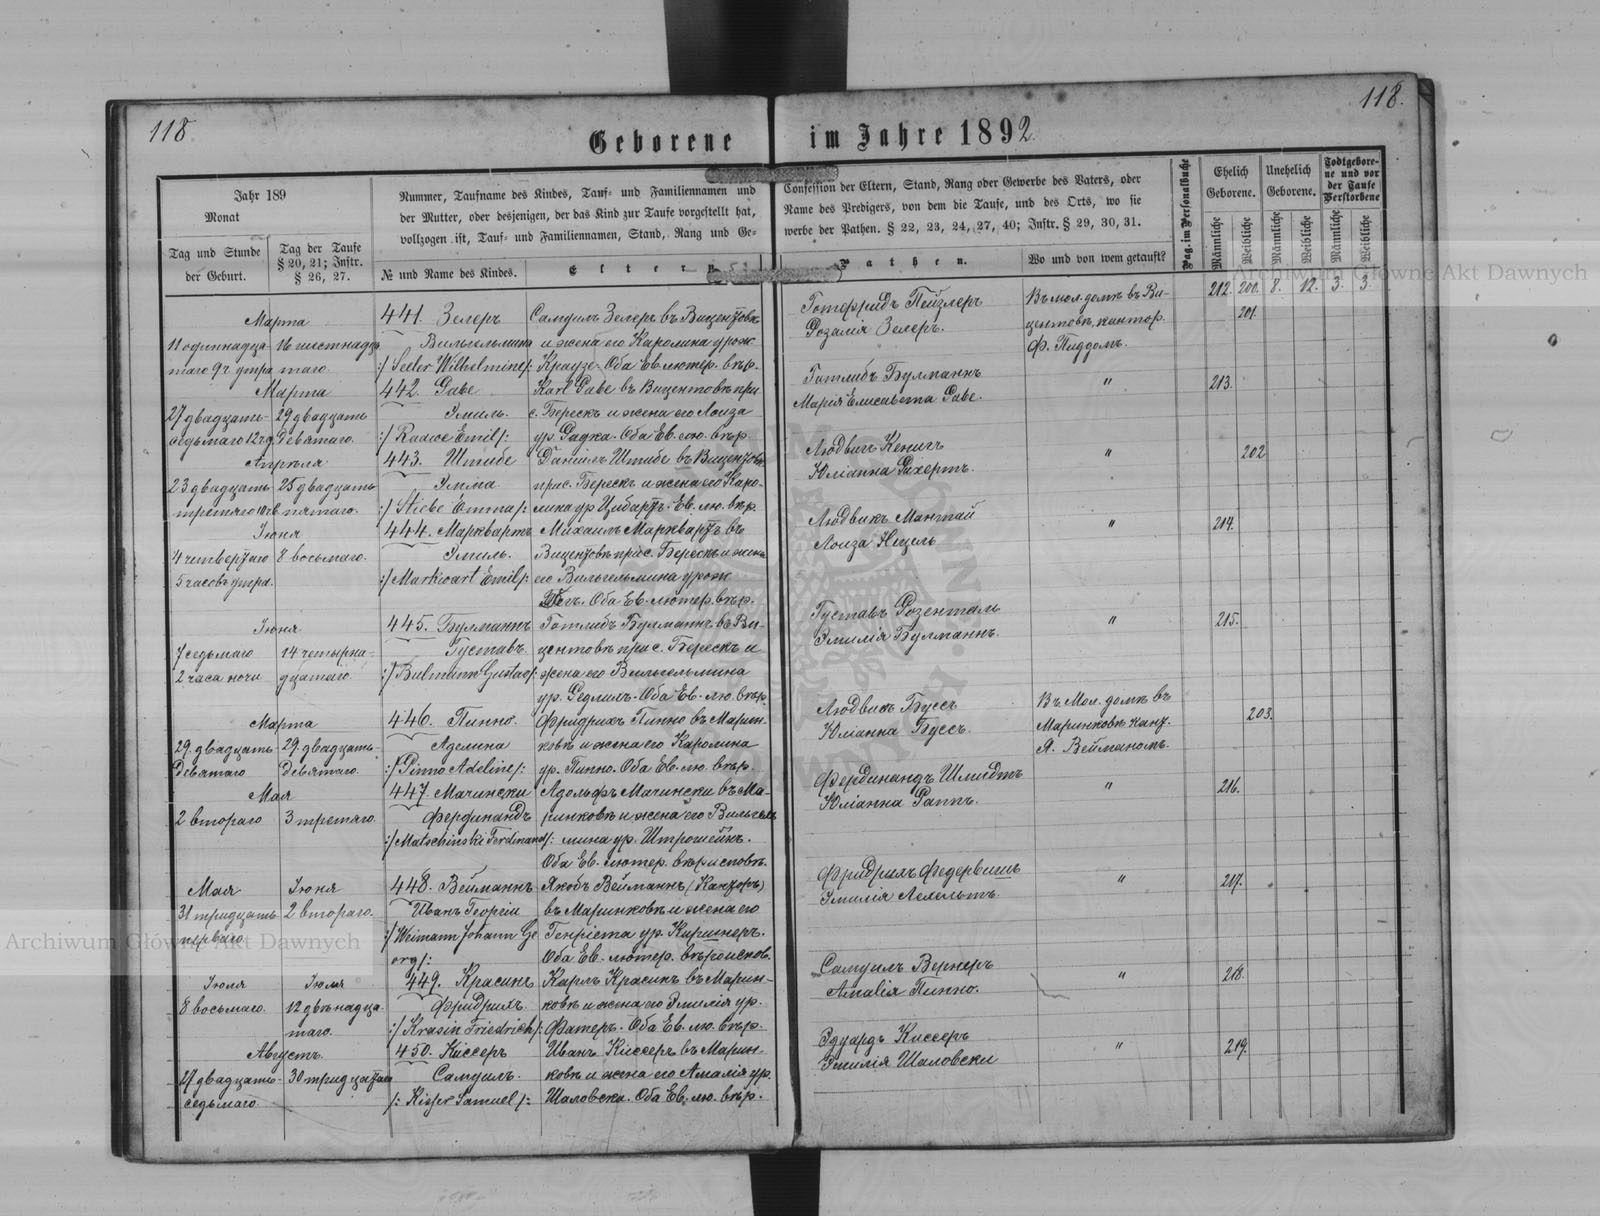 118
118.
Geborene im Jahre 1892.
Jahr 189
Monat
Tag und Stunde der Geburt.
Tag der Taufe § 20, 21; Instr. § 26, 27.
Nummer, Taufname des Kindes, Tauf- und Familiennamen und
der Mutter, oder desjenigen, der das Kind zur Taufe vorgestellt hat,
vollzogen ist, Tauf- und Familiennamen, Stand, Rang und Ge-
№ und Name des Kindes.
Eltern
Confession der Eltern, Stand, Rang oder Gewerbe des Vaters, oder
Name des Predigers, von dem die Taufe, und des Orts, wo sie
werbe der Pathen. § 22, 23, 24, 27, 40; Instr. § 29, 30, 31.
Pathen.
Wo und von wem getauft?
Pag. im Personalbuche
Ehelich Geborene.
Unehelich Geborene.
Todtgeborene und vor der Taufe Verstorbene
Männliche
Weibliche
Männliche
Weibliche
Männliche
Weibliche
212. 200. 8. 12. 3. 3.
Марта
11 одиннадца-
таго 9 ч. утра
16 шестнадца
таго
441. Зелеръ
Вильгельмина
:/ Seeler Wilhelmine /:
Самуилъ Зелеръ въ Виценѣовкѣ
и жена его Каролина урож
Краузе. Оба Ев. лютер. вѣр.
Готфридъ Пейзлеръ
Розалія Зелеръ.
Въ мол. домѣ въ Ви-
центовкѣ, кантор.
Ф. Пиддомъ.
201.
Марта
27 двадцать
седьмаго 12 ч д.
29 двадцать
девятаго.
442. Габе
Эмиль.
:/ Raawe Emil /:
Karl Габе въ Вицентовкѣ при
с. Берескъ и жена его Лоиза
ур. Гадка. Оба Ев. лю. вѣр.
Готлибъ Булманнъ
Марія Елисавета Габе.
"
213.
Апрѣля
23 двадцать
третяго
25 двадцать
пятаго.
443. Штибе
Эмма
:/ Stiebe Emma /:
Даніилъ Штибе въ Виценѣовкѣ
при с. Берескъ и жена его Каро-
лина ур Цибартъ. Ев. лю. вѣр.
Людвигъ Кенигъ
Юліанна Рахертъ.
"
202
Іюня
4 четвертаго
5 часовъ утра.
8 восьмаго.
444. Марквартъ
Эмиль.
:/ Markwart Emil /:
Михаилъ Марквартъ въ
Виценѣовкѣ при с. Берескъ и жена
его Вильгельмина урож
Оба Ев. лютер. вѣр.
Людвикъ Мантай
Лоиза Нецель
"
214.
Іюня
7 седьмаго
2 часа ночи
14 четырна-
дцатаго.
445. Булманнъ
Густавъ.
:/ Bulmann Gustav /:
Готлибъ Булманнъ въ Ви-
центовкѣ при с. Берескъ и
жена его Вильгельмина
ур. Редлихъ. Оба Ев. лю. вѣр.
Густавъ Розенталь
Эмилія Булманнъ.
"
215.
Марта
29 двадцать
девятаго
29 двадцать-
девятаго.
446. Пинно.
Аделина
:/ Pinno Adeline /:
Фридрихъ Пинно въ Марин-
ковкѣ и жена его Каролина
ур. Пинно. Оба Ев. лю. вѣр.
Людвикъ Буссъ
Юліанна Буссъ.
Въ Мол. домѣ въ
Маринковкѣ кант.
Я. Вейманомъ.
203.
Мая
2 втораго
3 третяго.
447 Мачински
Фердинандъ
:/ Matschinski Ferdinand /:
Адольфъ Мачински въ Ма-
ринковкѣ и жена его Вильгель
мина ур. Штрошейнъ.
Оба Ев. лютер. вѣроисповѣ.
Фердинандъ Шмидтъ
Юліанна Раппъ.
"
216.
Мая
31 тридцать
перваго
Іюня
2 втораго.
448. Вейманнъ
Иванъ Георгій
:/ Weimann Johann Ge
org /:
Якобъ Вейманнъ (Канторъ)
въ Маринковкѣ и жена его
Генріета ур. Киршнеръ.
Оба Ев. лютер. вѣроиспов.
Фридрихъ Федервишъ
Эмилія
"
217.
Іюля
8 восьмаго.
Іюля
12 двѣнадца-
таго.
449. Красинъ
Фридрихъ.
:/ Krasin Friedrich /:
Карлъ Красинъ въ Марин-
ковкѣ и жена его Эмилія ур.
Фатеръ. Оба Ев. лю. вѣр.
Самуилъ Вернеръ
Амалія Пинно.
"
218.
Августъ.
27 двадцать
седьмаго.
30 тридцатаго
450. Киссеръ
Самуилъ.
/: Kisser Samuel /:
Иванъ Киссеръ въ Марин-
ковкѣ и жена его Амалія ур.
Шаловска. Оба Ев. лю. вѣр.
Эдуардъ Киссеръ
Эмилія Шаловски
"
219.
Archiwum Główne Akt Dawnych
Archiwum Główne Akt Dawnych